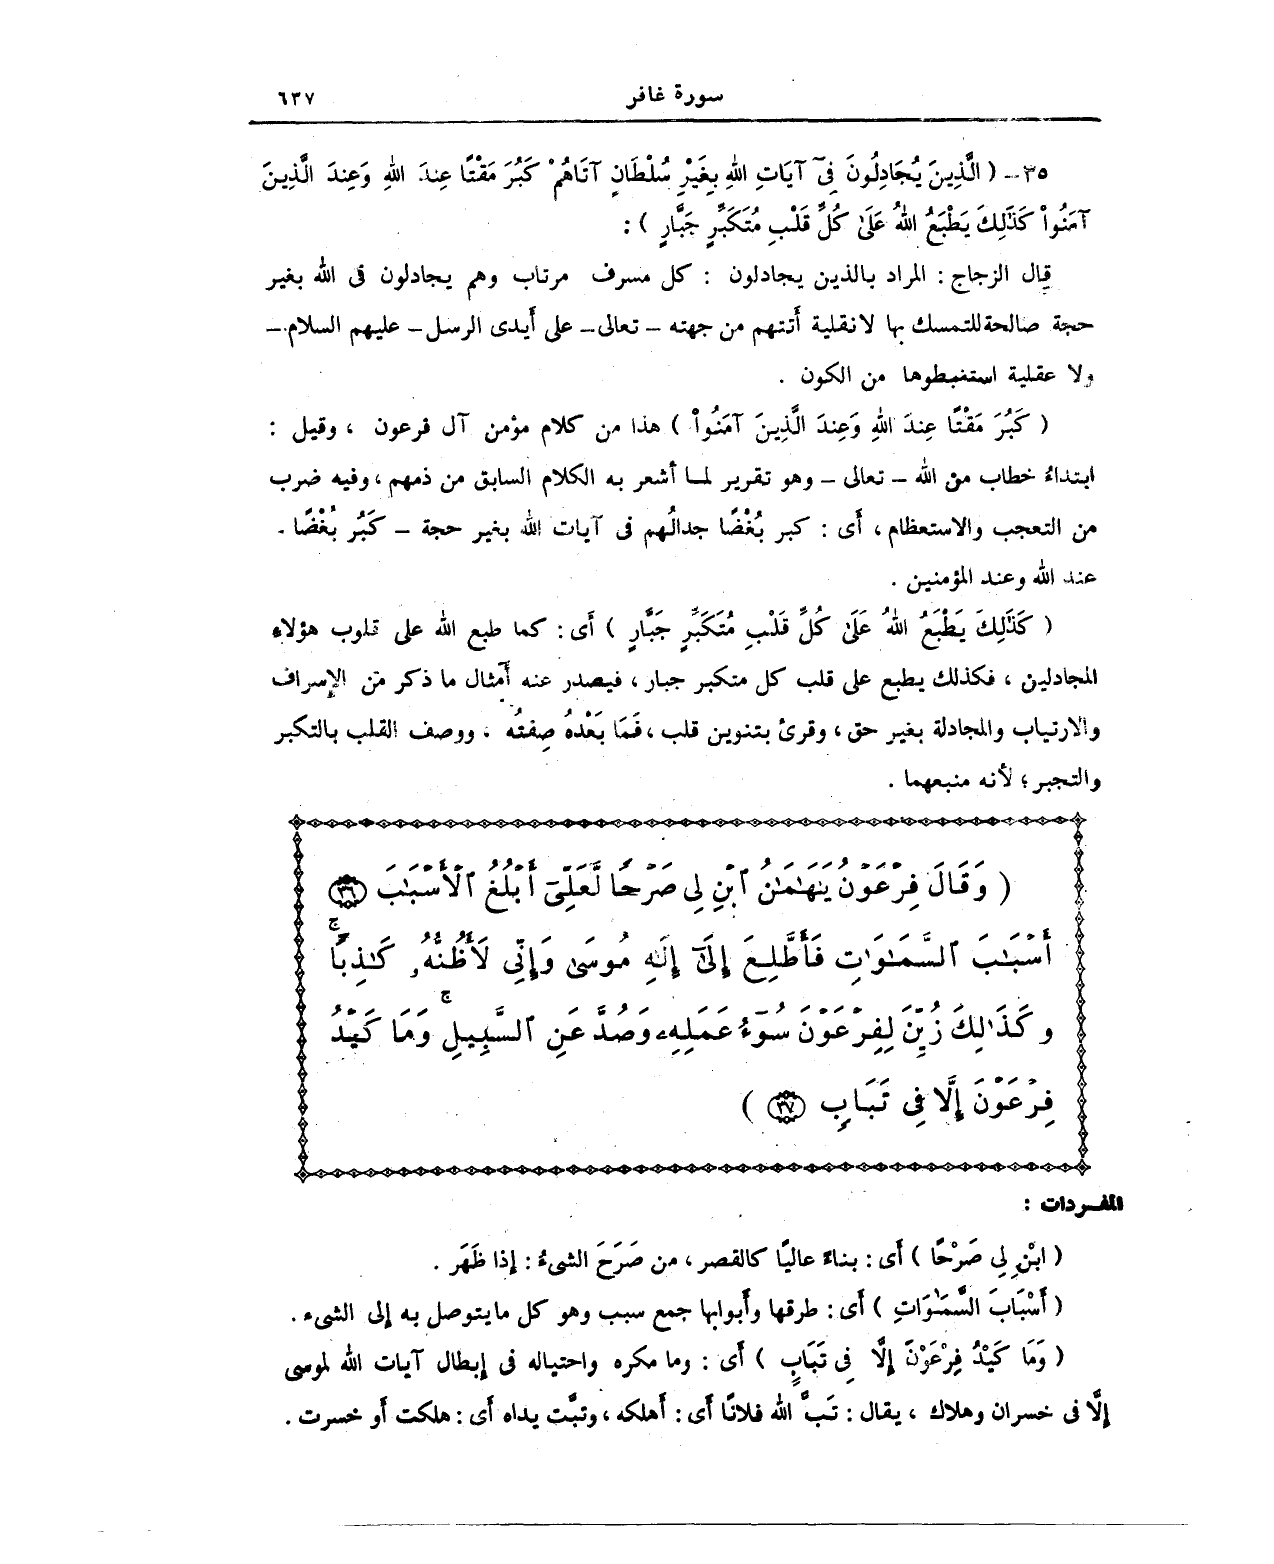 سورة غافر ٦٣٧
٣٥ــ ( الَّذِينَ يُجَادِلُونَ فِىٓ آيَاتِ اللهِ بِغَيْرِ سُلْطَانٍ آتَاهُمْ كَبُرَ مَقْتًا عِندَ اللهِ وَعِندَ الَّذِينَ
آمَنُواْ كَذَٰلِكَ يَطْبَعُ اللهُ عَلَىٰ كُلِّ قَلْبِ مُتَكَبِّرٍ جَبَّارٍ ) :
قال الزجاج : المراد بالذين يجادلون : كل مسرف مرتاب وهم يجادلون فى الله بغير
حجة صالحة للتمسك بها لا نقلية أتتهم من جهته – تعالى– على أيدى الرسل– عليهم السلام–
ولا عقلية استنبطوها من الكون .
( كَبُرَ مَقْتًا عِندَ اللهِ وَعِندَ الَّذِينَ آمَنُواْ ) هذا من كلام مؤمن آل فرعون ، وقيل :
ابتداءُ خطاب من الله – تعالى – وهو تقرير لمـا أشعر به الكلام السابق من ذمهم ، وفيه ضرب
من التعجب والاستعظام ، أى : كبر بُغْضًا جدالُهم فى آيات الله بغير حجة – كَبُر بُغْضًا –
عند الله وعند المؤمنين .
( كَذَٰلِكَ يَطْبَعُ اللهُ عَلَىٰ كُلِّ قَلْبِ مُتَكَبِّرٍ جَبَّارٍ ) أى : كما طبع الله على قلوب هؤلاء
المجادلين ، فكذلك يطبع على قلب كل متكبر جبار ، فيصدر عنه أمثال ما ذكر من الإسراف
والارتياب والمجادلة بغير حق ، وقرئ بتنوين قلب ، فَمَا بَعْدهُ صِفتُه ، ووصف القلب بالتكبر
والتجبر ؛ لأنه منبعهما .
( وَقَالَ فِرْعَوْنُ يَٰهَٰمَٰنُ ٱبْنِ لِى صَرْحًا لَّعَلِّىٓ أَبْلُغُ ٱلْأَسْبَٰبَ ٣٦
أَسْبَٰبَ ٱلسَّمَٰوَٰتِ فَأَطَّلِعَ إِلَىٰٓ إِلَٰهِ مُوسَىٰ وَإِنِّى لَأَظُنُّهُۥ كَٰذِبًاۚ
وَكَذَٰلِكَ زُيِّنَ لِفِرْعَوْنَ سُوٓءُ عَمَلِهِۦ وَصُدَّ عَنِ ٱلسَّبِيلِۚ وَمَا كَيْدُ
فِرْعَوْنَ إِلَّا فِى تَبَابٍ ٣٧ )
المفـردات :
( ابْنِ لِي صَرْحًا ) أَى : بناءً عاليًا كالقصر ، من صَرَحَ الشىءُ : إذا ظَهَر .
( أَسْبَابَ السَّمَٰوَاتِ ) أَى : طرقها وأبوابها جمع سبب وهو كل ما يتوصل به إلى الشىء .
( وَمَا كَيْدُ فِرْعَوْنَ إِلَّا فِى تَبَابٍ ) أى : وما مكره واحتياله فى إبطال آيات الله لموسى
إلَّا فى خسران وهلاك ، يقال : تَبَّ الله فلانًا أى : أهلكه ، وتبَّت يداه أى : هلكت أو خسرت .